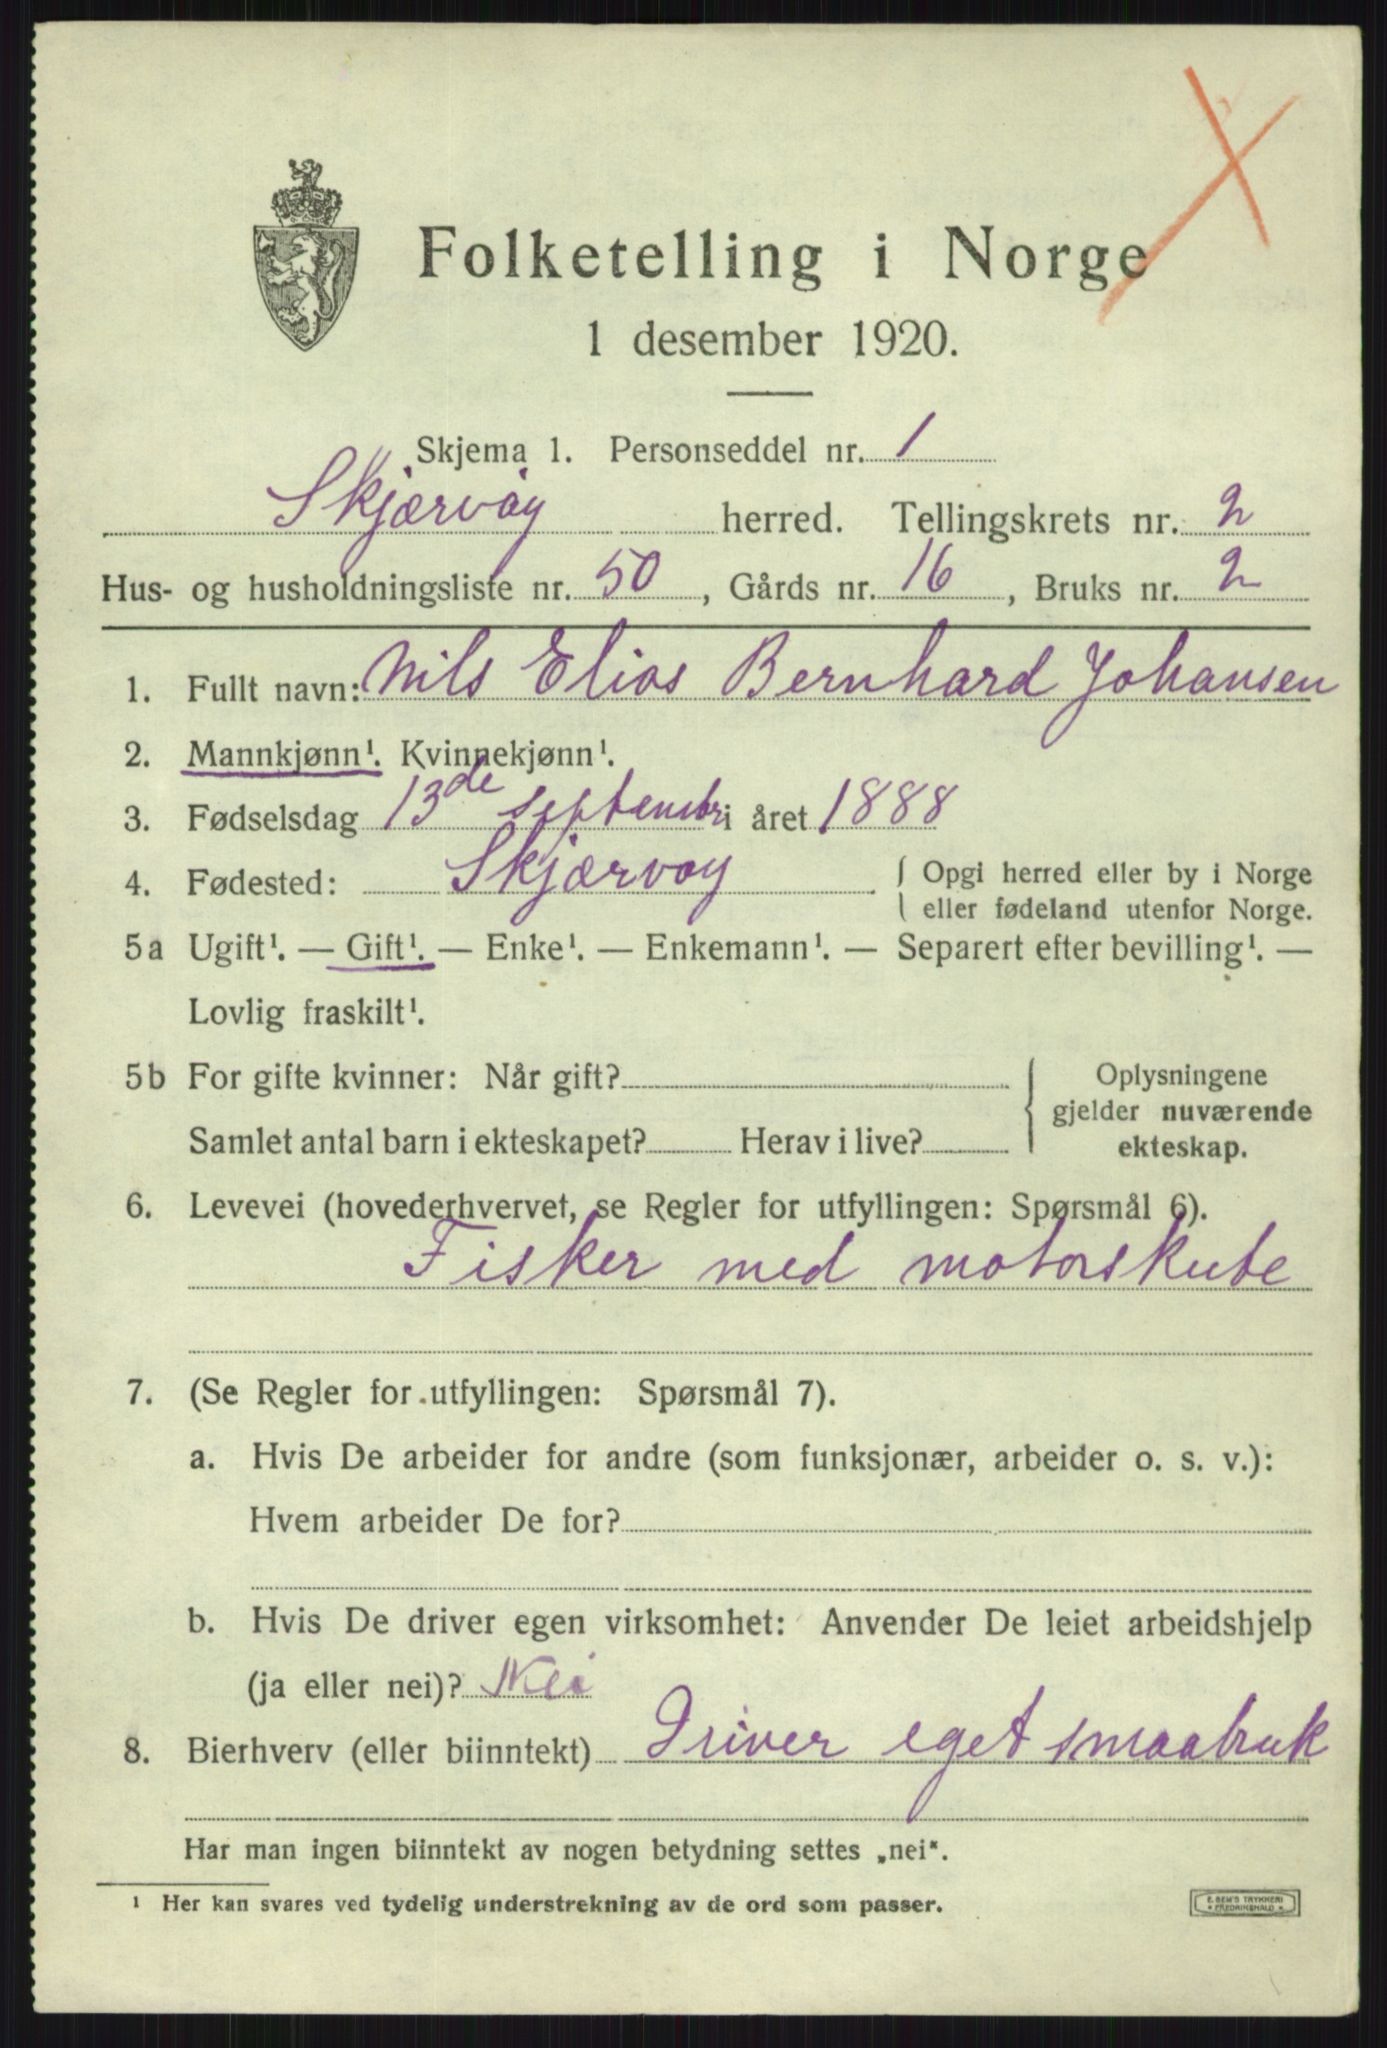 Folketelling i Norge
1 desember 1920.
Skjema 1. Personseddel nr. 1
Skjærvøy herred. Tellingskrets nr. 2
Hus- og husholdningsliste nr. 50, Gårds nr. 16, Bruks nr. 2
1. Fullt navn: Nils Elias Bernhard Johansen
2. Mannkjønn¹. Kvinnekjønn¹.
3. Fødselsdag 13de septembr i året 1888
4. Fødested: Skjærvøy { Opgi herred eller by i Norge
eller fødeland utenfor Norge.
5a Ugift¹. — Gift¹. — Enke¹. — Enkemann¹. — Separert efter bevilling¹. —
Lovlig fraskilt¹.
5b For gifte kvinner: Når gift? { Oplysningene
gjelder nuværende
Samlet antal barn i ekteskapet? Herav i live? ekteskap.
6. Levevei (hovederhvervet, se Regler for utfyllingen: Spørsmål 6).
Fisker med motorskute
7. (Se Regler for utfyllingen: Spørsmål 7).
a. Hvis De arbeider for andre (som funksjonær, arbeider o. s. v.):
Hvem arbeider De for?
b. Hvis De driver egen virksomhet: Anvender De leiet arbeidshjelp
(ja eller nei)? Nei
8. Bierhverv (eller biinntekt) Driver eget smaabruk
Har man ingen biinntekt av nogen betydning settes „nei“.
¹ Her kan svares ved tydelig understrekning av de ord som passer.
E. SEM'S TRYKKERI
FREDRIKSHALD